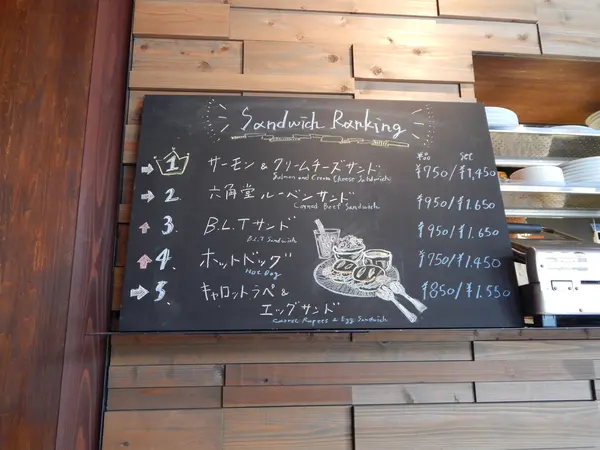 Sandwich Ranking
単品 Set
→ 1 サーモン & クリームチーズサンド ¥750/¥1,450
Salmon and Cream Cheese Sandwich
→ 2. 六角堂ルーベンサンド ¥950/¥1.650
Corned Beef Sandwich
↑ 3. B.L.Tサンド ¥950/¥1.650
B.L.T Sandwich
↑ 4. ホットドッグ ¥750/¥1.450
Hot Dog
→ 5. キャロットラペ & ¥850/¥1.550
エッグサンド
Carrot Rapees & Egg Sandwich